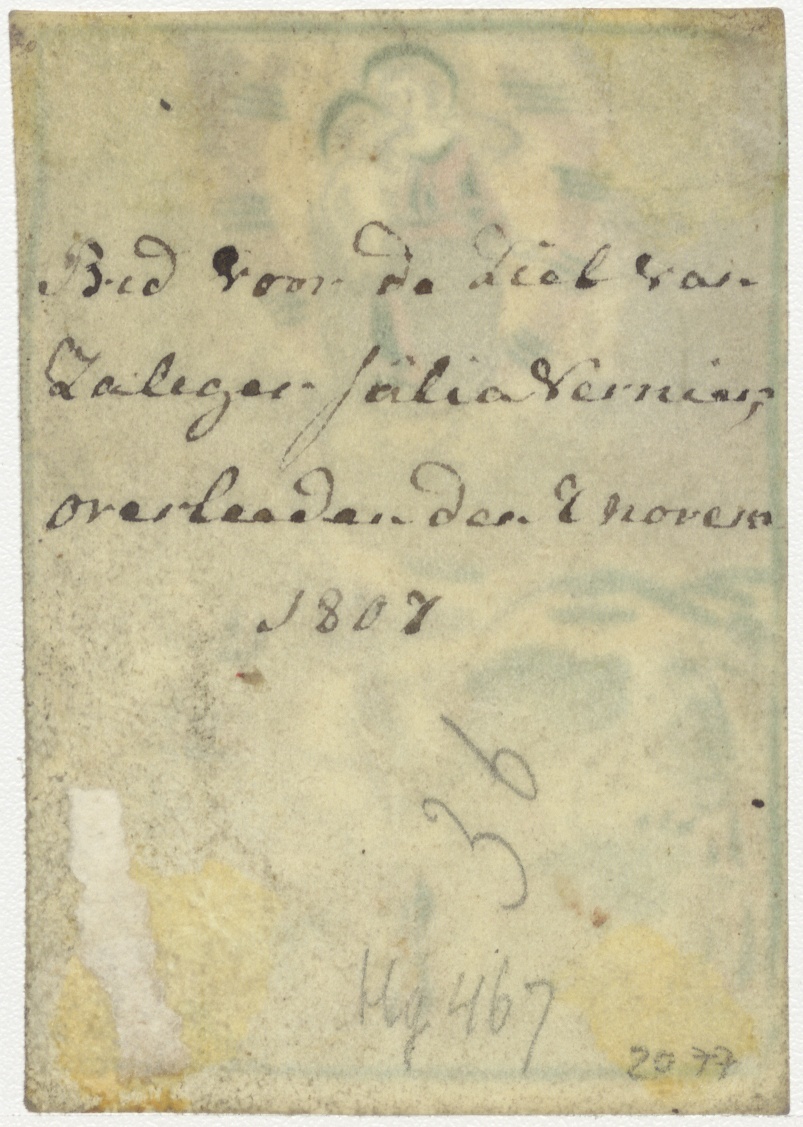 Bid voor de Ziel van
Zaleger julia Vernier,
overleeden den 7 novem
1807
36
Hg 467
2077